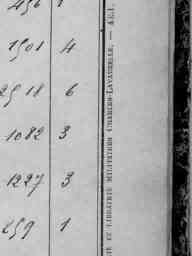 456 1
1501 4
2518 6
1082 3
1227 3
259 1
IE ET LIBRAIRIE MILITAIRES CHARLES-LAVAUZELLE. — 4.E.I.